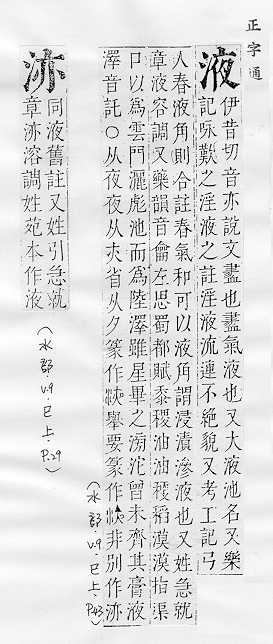 正字通
液
伊昔切音亦說文𧗁也𧗁氣液也又大液池名又樂
記咏歎之淫液之註淫液流連不絕貌又考工記弓
人春液角則合註春氣和可以液角謂浸漬滲液也又姓急就
章液容調又藥韻音龠左思蜀都賦黍稷油油稉稻漠漠指渠
口以為雲門灑彪池而為陸澤雖星畢之滂沱曾未齊其膏液
澤音託○从夜夜从夾省从夕篆作㴒舉要篆作㴒非別作洂
(水部.V.9.巳上.P.43)
洂
同液舊註又姓引急就
章洂溶調姓苑本作液
(水部.V.9.巳上.P.29)